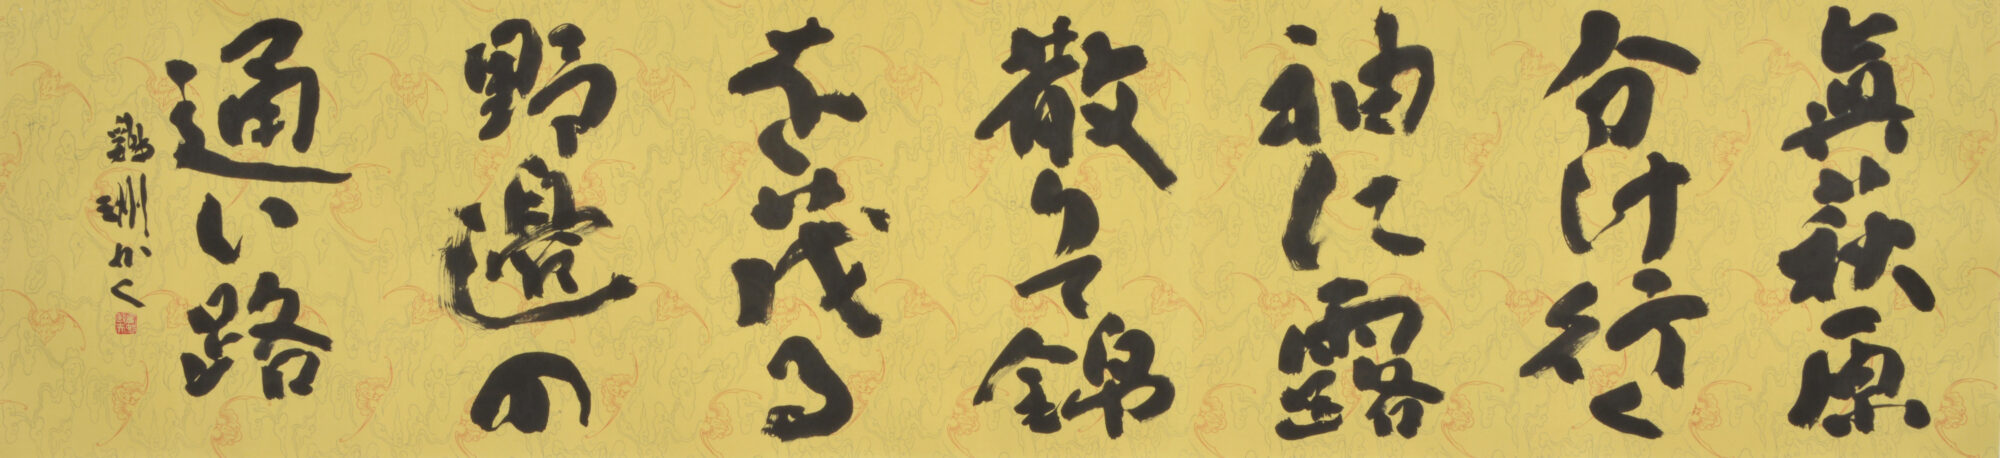 眞萩原
分け行く
袖に露
散りて錦
を茂る
野邊の
通い路
洲かく